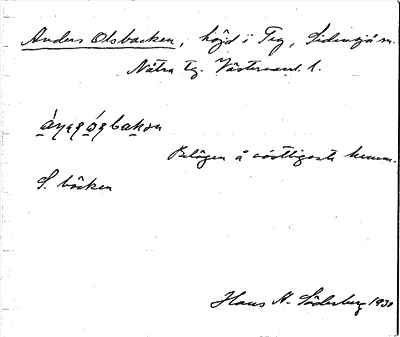 Anders Olsbacken, höjd i Teg, Sidensjö sn.
Nätra tg. Västernorrl. l.
Belägen å västligaste hemm.
S. bäcken
Hans N. Söderberg 1930